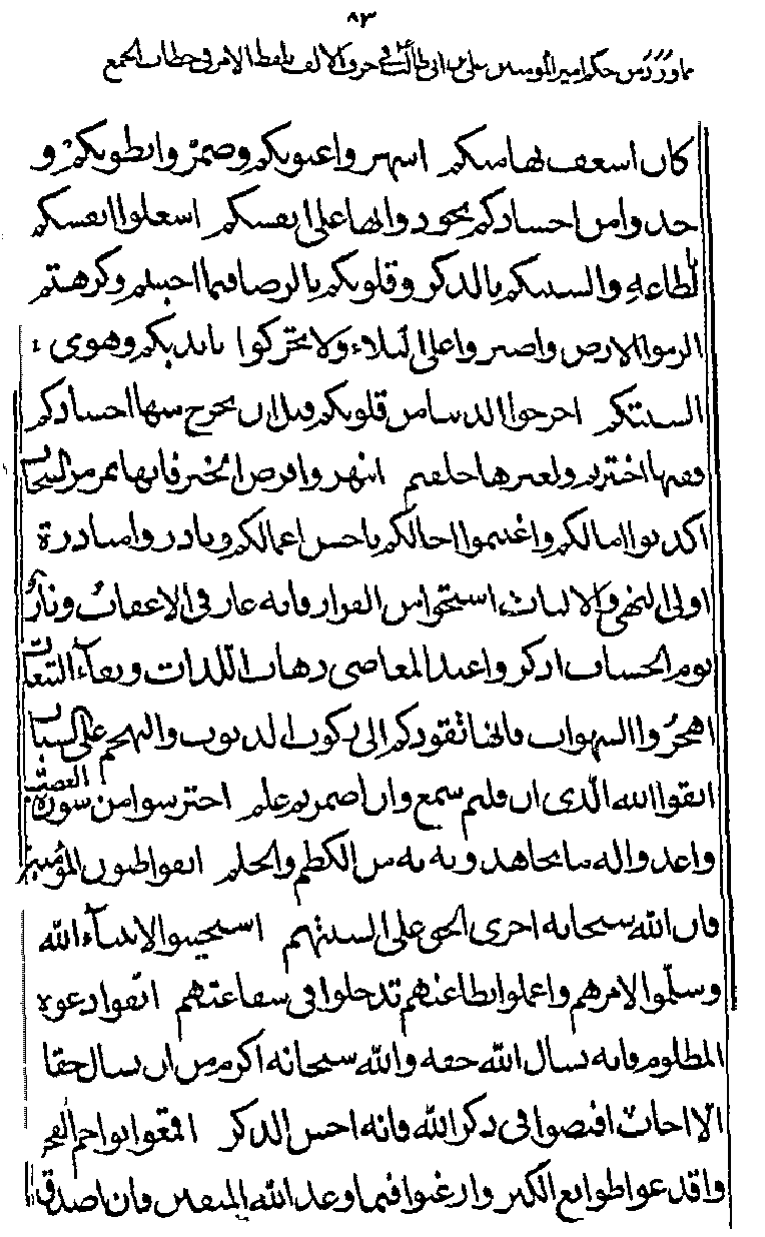 ٨٣
مما ورد من حكم امير المؤمنين علي بن ابي طالب في حرف الالف بلفظ الامر في خطاب الجمع
كان اسعف لها منكم اسهروا عيونكم وضمروا بطونكم و
خذوا من اجسادكم تجودوا بها على انفسكم اشغلوا انفسكم
بالطاعة والسنتكم بالذكر وقلوبكم بالرضا فيما احببتم وكرهتم
الزموا الارض واصبروا على البلاء ولا تحركوا بايديكم وهوى
السنتكم اخرجوا الدنيا من قلوبكم قبل ان تخرج منها اجسادكم
ففيها اختبرتم ولغيرها خلقتم انتهزوا فرص الخير فانها تمر مر السحاب
اكذبوا امالكم واغتنموا اجالكم باحسن اعمالكم وبادروا مبادرة
اولى النهى والالباب استحيوا من الفرار فانه عار في الاعقاب ونار
يوم الحساب اذكروا عند المعاصى ذهاب اللذات وبقاء التبعات
اهجروا الشهوات فانها تقودكم الى ركوب الذنوب والتهجم على السيئات
اتقوا الله الذى ان قلتم سمع وان اضمرتم علم احترسوا من سورة الغضب
واعدوا له ما تجاهدونه به من الكظم والحلم اتقوا ظنون المؤمنين
فان الله سبحانه اجرى الحق على السنتهم استجيبوا لانبياء الله
وسلموا لامرهم واعملوا بطاعتهم تدخلوا في شفاعتهم اتقوا دعوة
المظلوم فانه يسال الله حقه والله سبحانه اكرم من ان يسال حقا
الا اجاب افيضوا في ذكر الله فانه احسن الذكر اقمعوا نواجم الفخر
واقدعوا طوالع الكبر وارغبوا فيما وعد الله المتقين فان اصدق